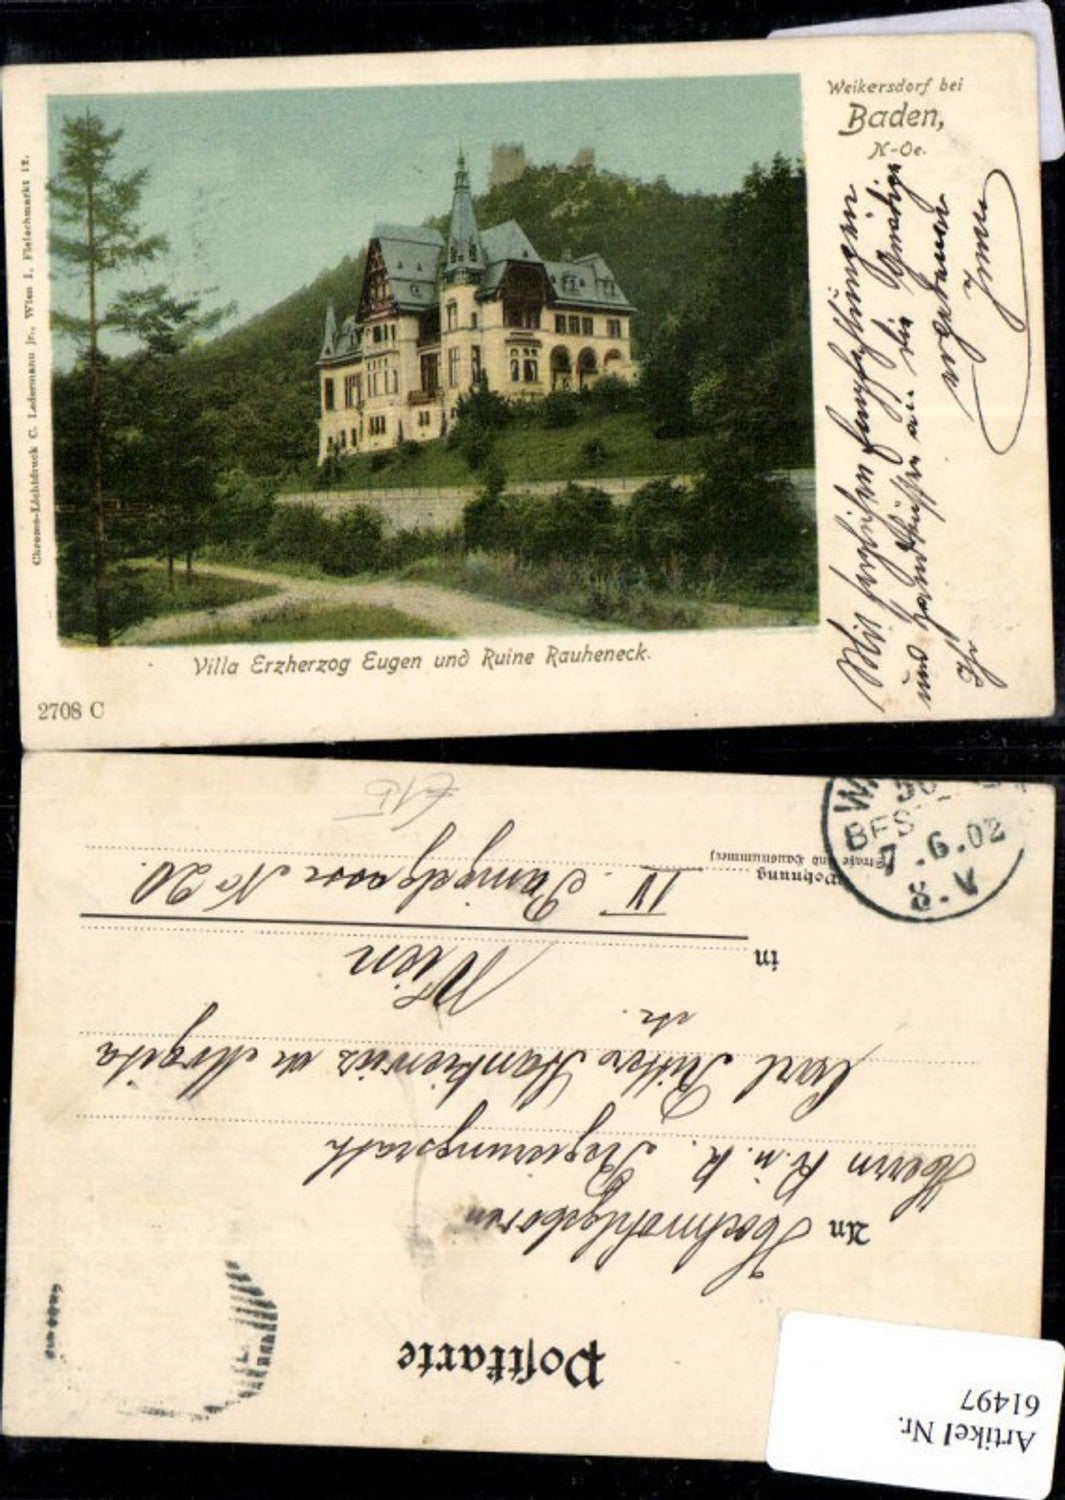 Weikersdorf bei
Baden,
N-Oe.
Mit herzlichen Empfehlungen
und Handküssen an die Gnädige
Ihr ergebener
Chromo-Lichtdruck C. Ledermann jr., Wien I, Fleischmarkt 12.
Villa Erzherzog Eugen und Ruine Rauheneck.
2708 C
Postkarte
An Hochwohlgeboren
Herrn K. u. K. Regierungsrath
Carl Ritter
etc.
in Wien
IV. No 20.
Wohnung
(Straße und Hausnummer)
BEST
7.6.02
8.V
Artikel Nr.
61497